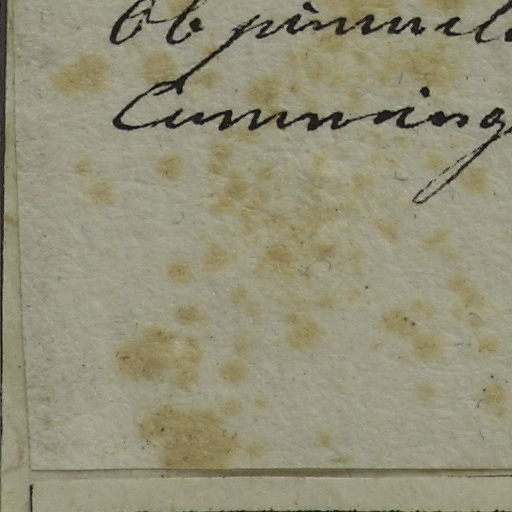 Ob pinnul
Cumming